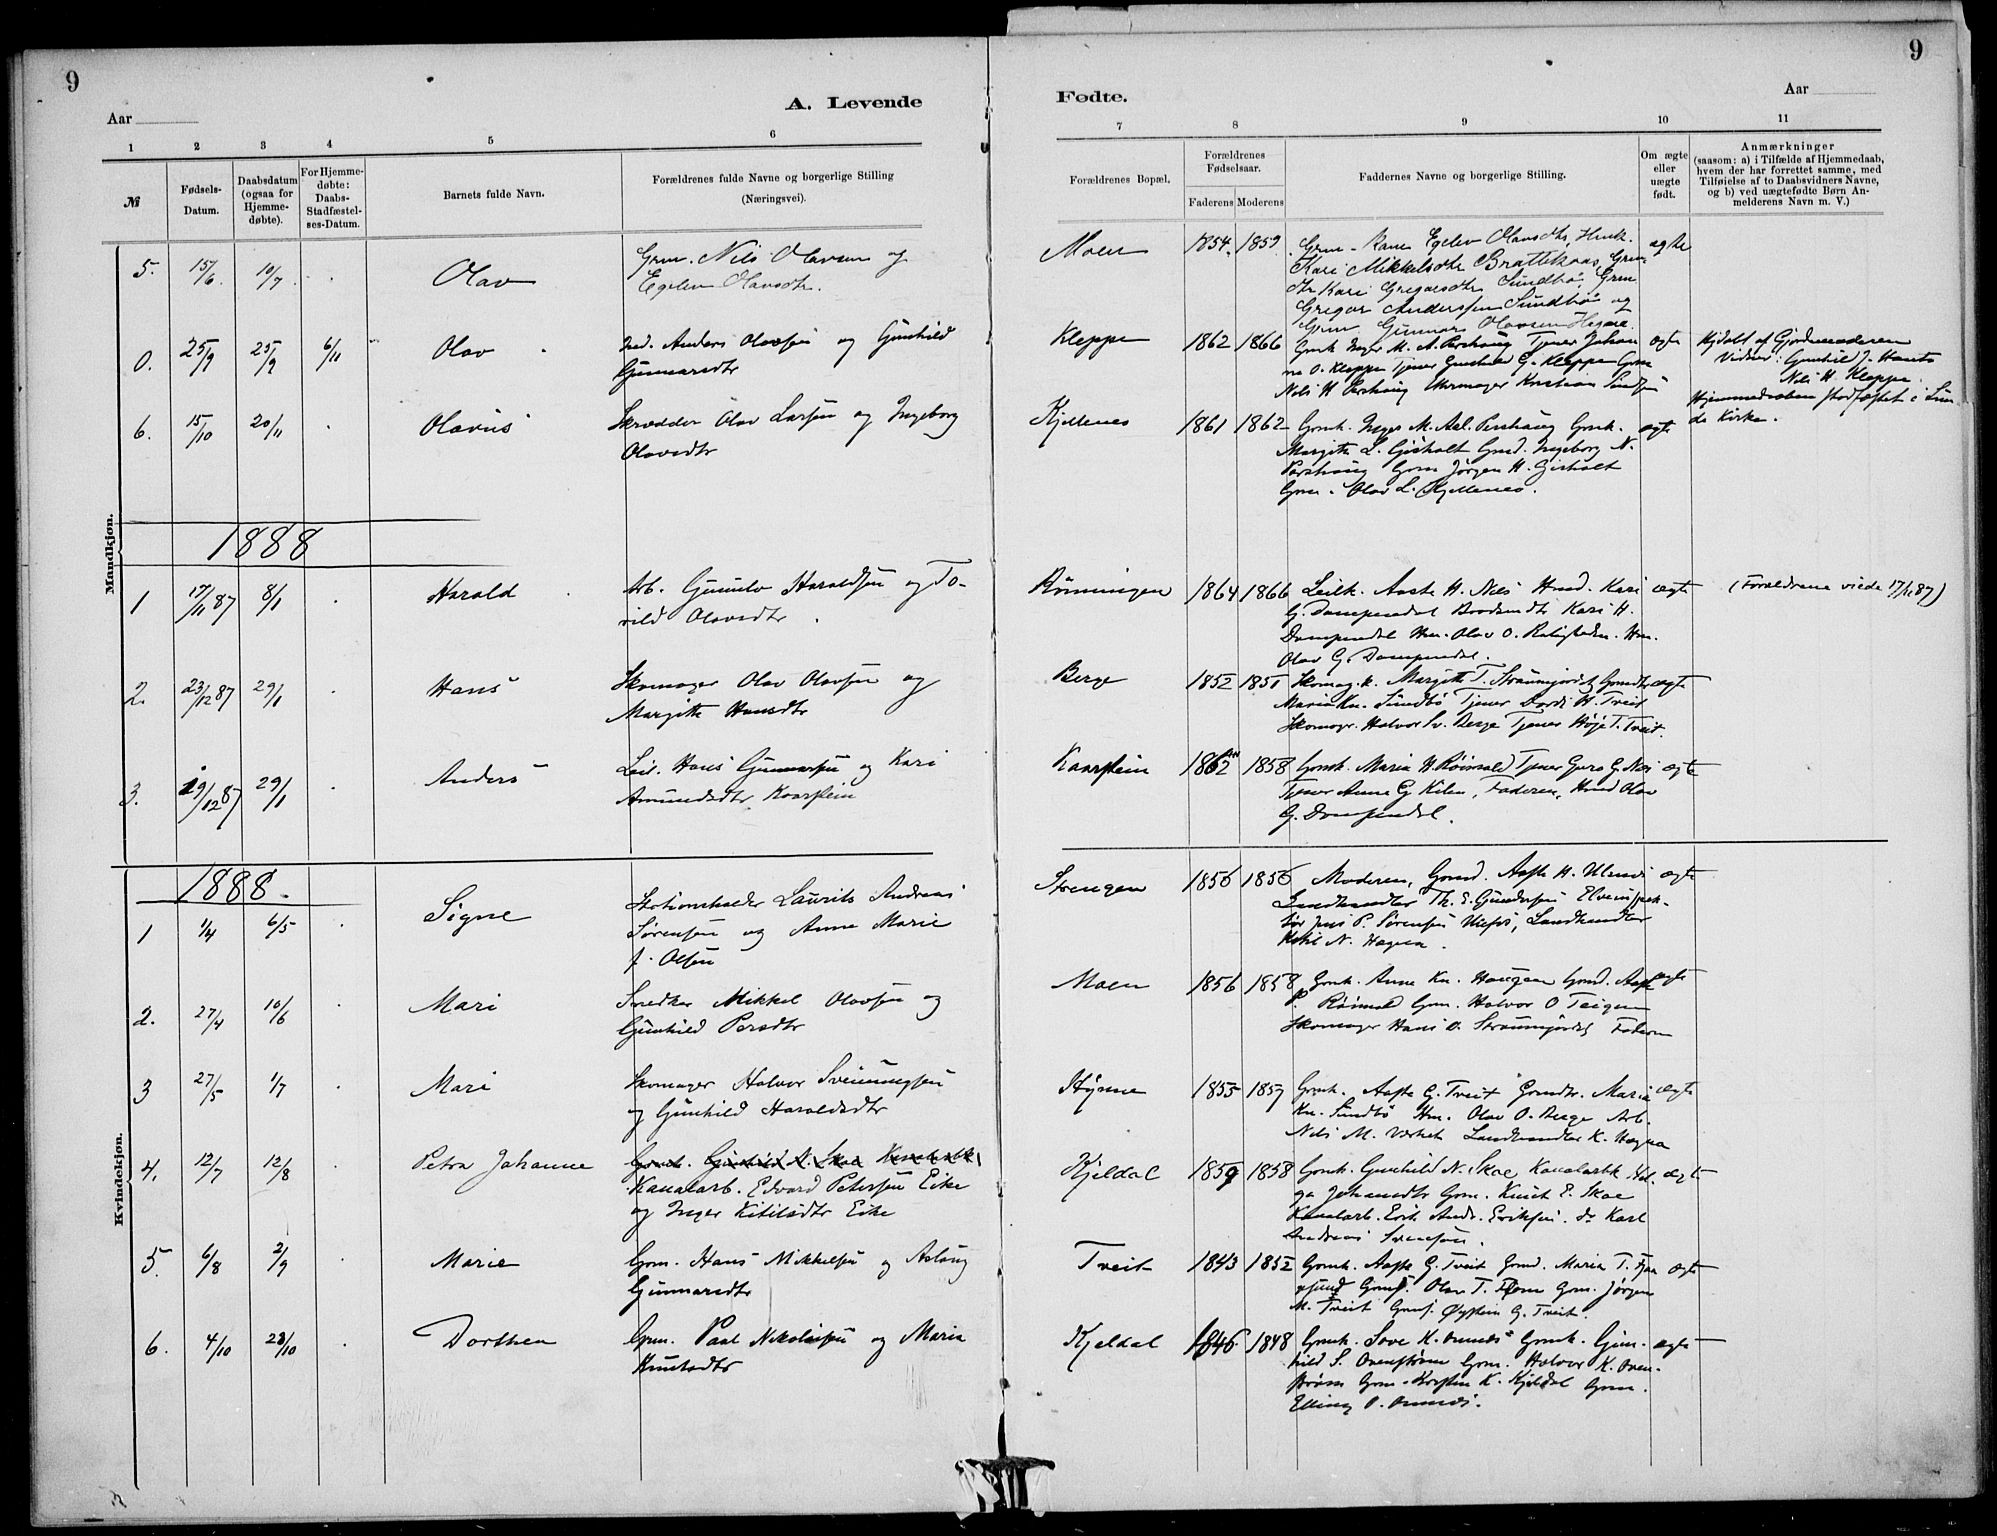 9
9
A. Levende
Fødte.
Aar
Aar
1 2 3 4 5 6 7 8 9 10 11
№
Fødsels-
Datum.
Daabsdatum
(ogsaa for
Hjemme-
døbte).
For Hjemme-
døbte:
Daabs-
Stadfæstel-
ses-Datum.
Barnets fulde Navn.
Forældrenes fulde Navne og borgerlige Stilling
(Næringsvei).
Forældrenes Bopæl,
Forældrenes
Fødselsaar.
Faderens Moderens
Faddernes Navne og borgerlige Stilling.
Om ægte
eller
uægte
født.
Anmærkninger
(saasom: a) i Tilfælde af Hjemmedaab,
hvem der har forrettet samme, med
Tilføielse af to Daabsvidners Navne,
og b) ved uægtefødte Børn An-
melderens Navn m. V.)
Mandkjøn.
5. 15/6 10/7 Olav
Grm. Nils Olavsen og
Egelev Olavsdtr.
Moen 1854. 1859
Grm. Kone Egelev Olavsdtr,
Kari Mikkelsdtr Brattekaas,
dtr Kari Gregarsdtr Sundbö, Grm
Gregar Anderssen Sundbö og
Grm. Gunnar Olavsen
ægte
0. 25/9 25/9 6/11 Olav
Anders Olavsen og Gunhild
Gunnarsdtr
Kleppe 1862 1866
Gmk Inger M. A. Pershaug Tjener Johan
ne O. Kleppe Tjener Gunhild G. Kleppe Grm
Nils H Pershaug Urmager Kristian
ægte
Hjdøbt af Gjordemoderen
Vidner: Gunhild J.
Nils H. Kleppe.
Hjemmedaaben stadfæstet i Lun
de Kirke.
6. 15/10 20/11 Olavus
Skrædder Olav Larsen og Ingeborg
Olavsdtr
Kjellenes 1861 1862
Gmk. Inger M. Pershaug Gmk.
Margith L. Gisholt Gmd. Ingeborg N.
Pershaug Grm Jørgen H. Gisholt
Grm. Olav L. Kjellenes.
ægte
1888
1 17/11 87 8/1 Harald
Arb. Gunulv Haraldsen og To-
rild Olavsdtr.
Rönningen 1864 1866
Leilk. Aaste H. Næs Hmd. Kari
G. Dampendal Kari H.
Dampendal Hm. Olav O. Hm.
Olav G. Dampendal.
ægte
(Forældrene viede 17/11 87)
2. 23/12 87 29/1 Hans
Skomager Olav Olavsen og
Margith Hansdtr
Berge 1852 1851
Skomag.k. Margith T. Straumsjordet Grmdtr
Maria Kn. Sundbö Tjener Dordi H. Tveit
Skomagr. Halvor Sv. Berge Tjener Höje T. Tveit.
ægte
3. 29/12 87 29/1 Anders
Leil. Hans Gunnarsen og Kari
Amundsdtr. Kaasstein
Kaasstein 1862 1858
Gmk. Maria H. Röimaal Tjener Guro G. Næs
Tjener Anne G Kilen, Faderen, Hmd Olav
G. Dampendal.
ægte
Kvindekjøn.
1888.
1 1/4 6/5 Signe
Stationsholder Laurits Andreas
Sørensen og Anne Marie
f. Olsen
Strengen 1856 1856
Moderen, Gmd. Aaste H. Ulsnes
Landhandler Th. E. Gundersen Elveinspek-
tør Jens P. Sørensen Ulefos, Landhandler
Ketil N. Hagen.
ægte
2. 27/4 10/6 Mari
Snedker Mikkel Olavsen og
Gunhild Persdtr
Moen 1856 1858
Gmk. Anne Kn. Haugen Gmd. Aaste
P. Röimaal Grm. Halvor O Teigen
Skomager Hans O. Straumsjordet Faderen
ægte
3 27/5 1/7 Mari
Skomager Halvor Sveinungsen
og Gunhild Haraldsdtr
Hynne 1855 1857
Gmk. Aaste G. Tveit Grmdtr. Maria
Kn. Sundbö Hm. Olav O. Berge Arb.
Nils M. Landhandler K. Hagen
ægte
4. 12/7 12/8 Petra Johanne
Gmk. Gunhild N. Skoe
Kanalarb. Edvard Petersen Eike
og Inger Kitilsdtr Eike
Kjeldal 1859 1858
Gmk. Gunhild N. Skoe, Kanalarbk Hel-
ga Johansdtr Grm. Knut E. Skoe
Kanalarb. Erik Andr. Eriksen. do Karl
Andreas Svensson.
ægte
5. 6/8 2/9 Marie
Grm. Hans Mikkelsen og Aslaug
Gunnarsdtr
Tveit 1843 1852
Gmk. Aaste G. Tveit Gmd. Maria T.
Olav T. Grm. Jørgen
M. Tveit Øystein G. Tveit.
ægte
6. 4/10 28/10 Dorthea
Grm. Paal Nikolaisen og Maria
Knutsdtr
Kjeldal 1846. 1848
Gmk. Sove K. Gmk. Gun-
hild S. Grm. Halvor K.
Grm. Kristen K. Kjeldal Grm.
Elling
ægte